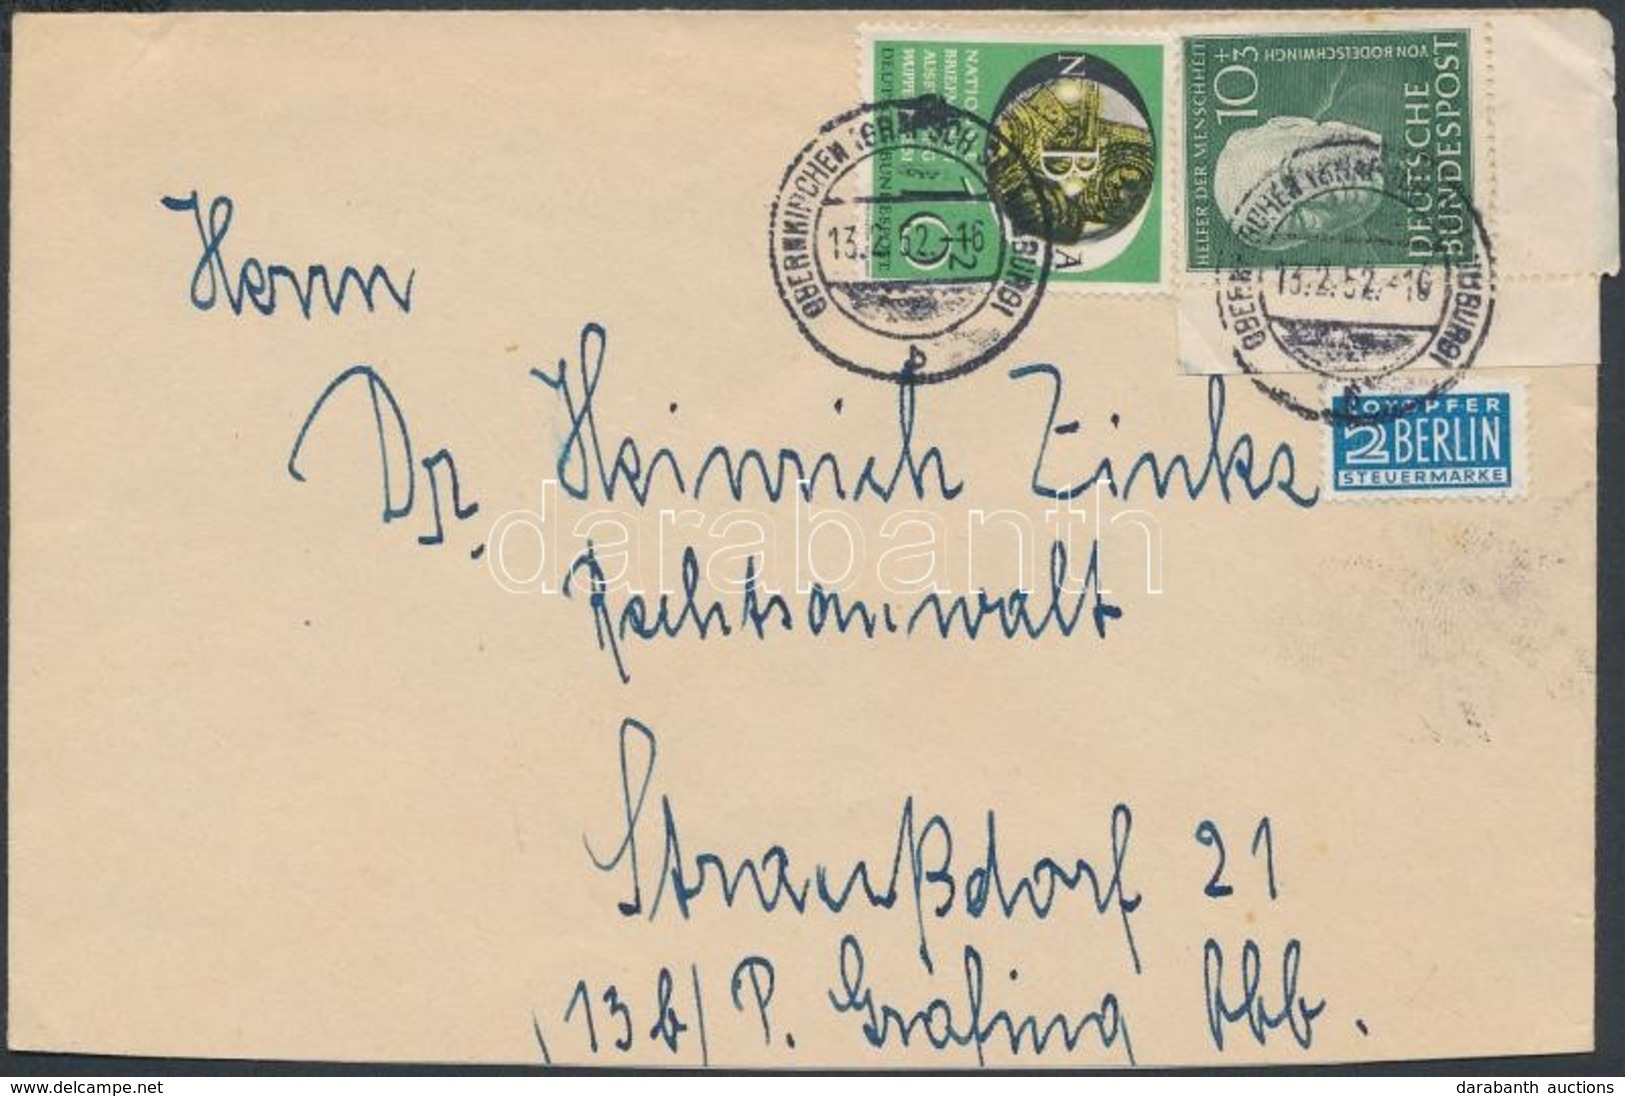 NATIO
BRIEFM
AUSS
WUPPE
DEUTSCHE BUNDESPOST
N B A
10 2
10+3
HELFER DER MENSCHHEIT
VON BODELSCHWINGH
DEUTSCHE
BUNDESPOST
OBERNKIRCHEN (GRAFSCH SCHAUMBURG)
13.2.52.-16
b
OBERNKIRCHEN (GRAFSCH SCHAUMBURG)
13.2.52.-16
NOTOPFER
2 BERLIN
STEUERMARKE
Herrn
Dr. Heinrich Zinks
Rechtsanwalt
darabanth
Straußdorf 21
13b/ P. Grafing Obb.
www.delcampe.net
darabanth auctions